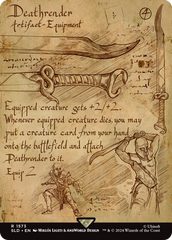 Deathrender
Artifact - Equipment
Equipped creature gets +2/+2.
Whenever equipped creature dies, you may
put a creature card from your hand
onto the battlefield and attach
Deathrender to it.
Equip
R 1573
SLD • EN
© Ubisoft
™ & © 2024 Wizards of the Coast